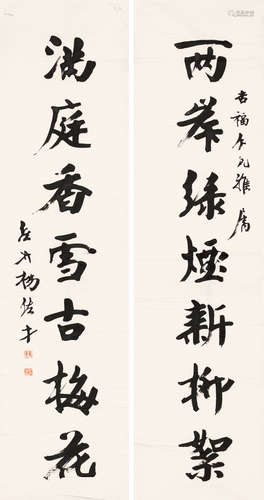 两岸绿烟新柳絮
吉福仁兄雅属
满庭香雪古梅花
杨佐才